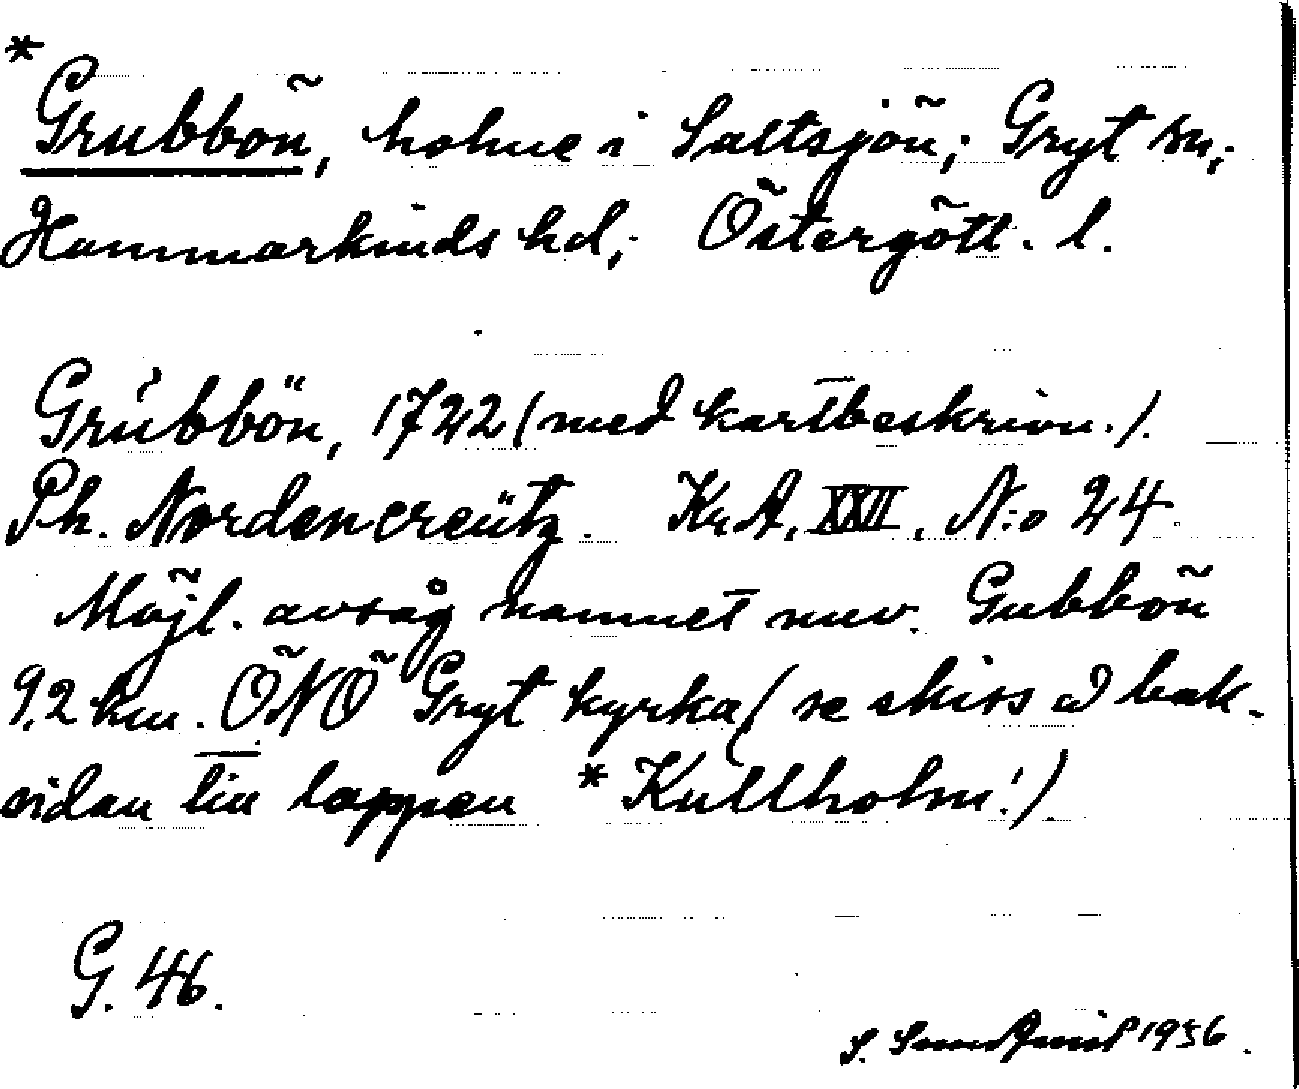 *
Grubbön, holme i Saltsjön; Gryt sn;
Hammarkinds hd; Östergötl. l.
Grúbbön, 1722 (med kartbeskrivn.).
Ph. Nordencreütz. Kr.A. XXII, N:o 24.
Möjl. avsåg namnet nuv. Gubbön
9,2 km. ÖNÖ Gryt kyrka (se skiss å bak-
sidan till lappen *Kullholm!)
G. 46.
S. 1956.